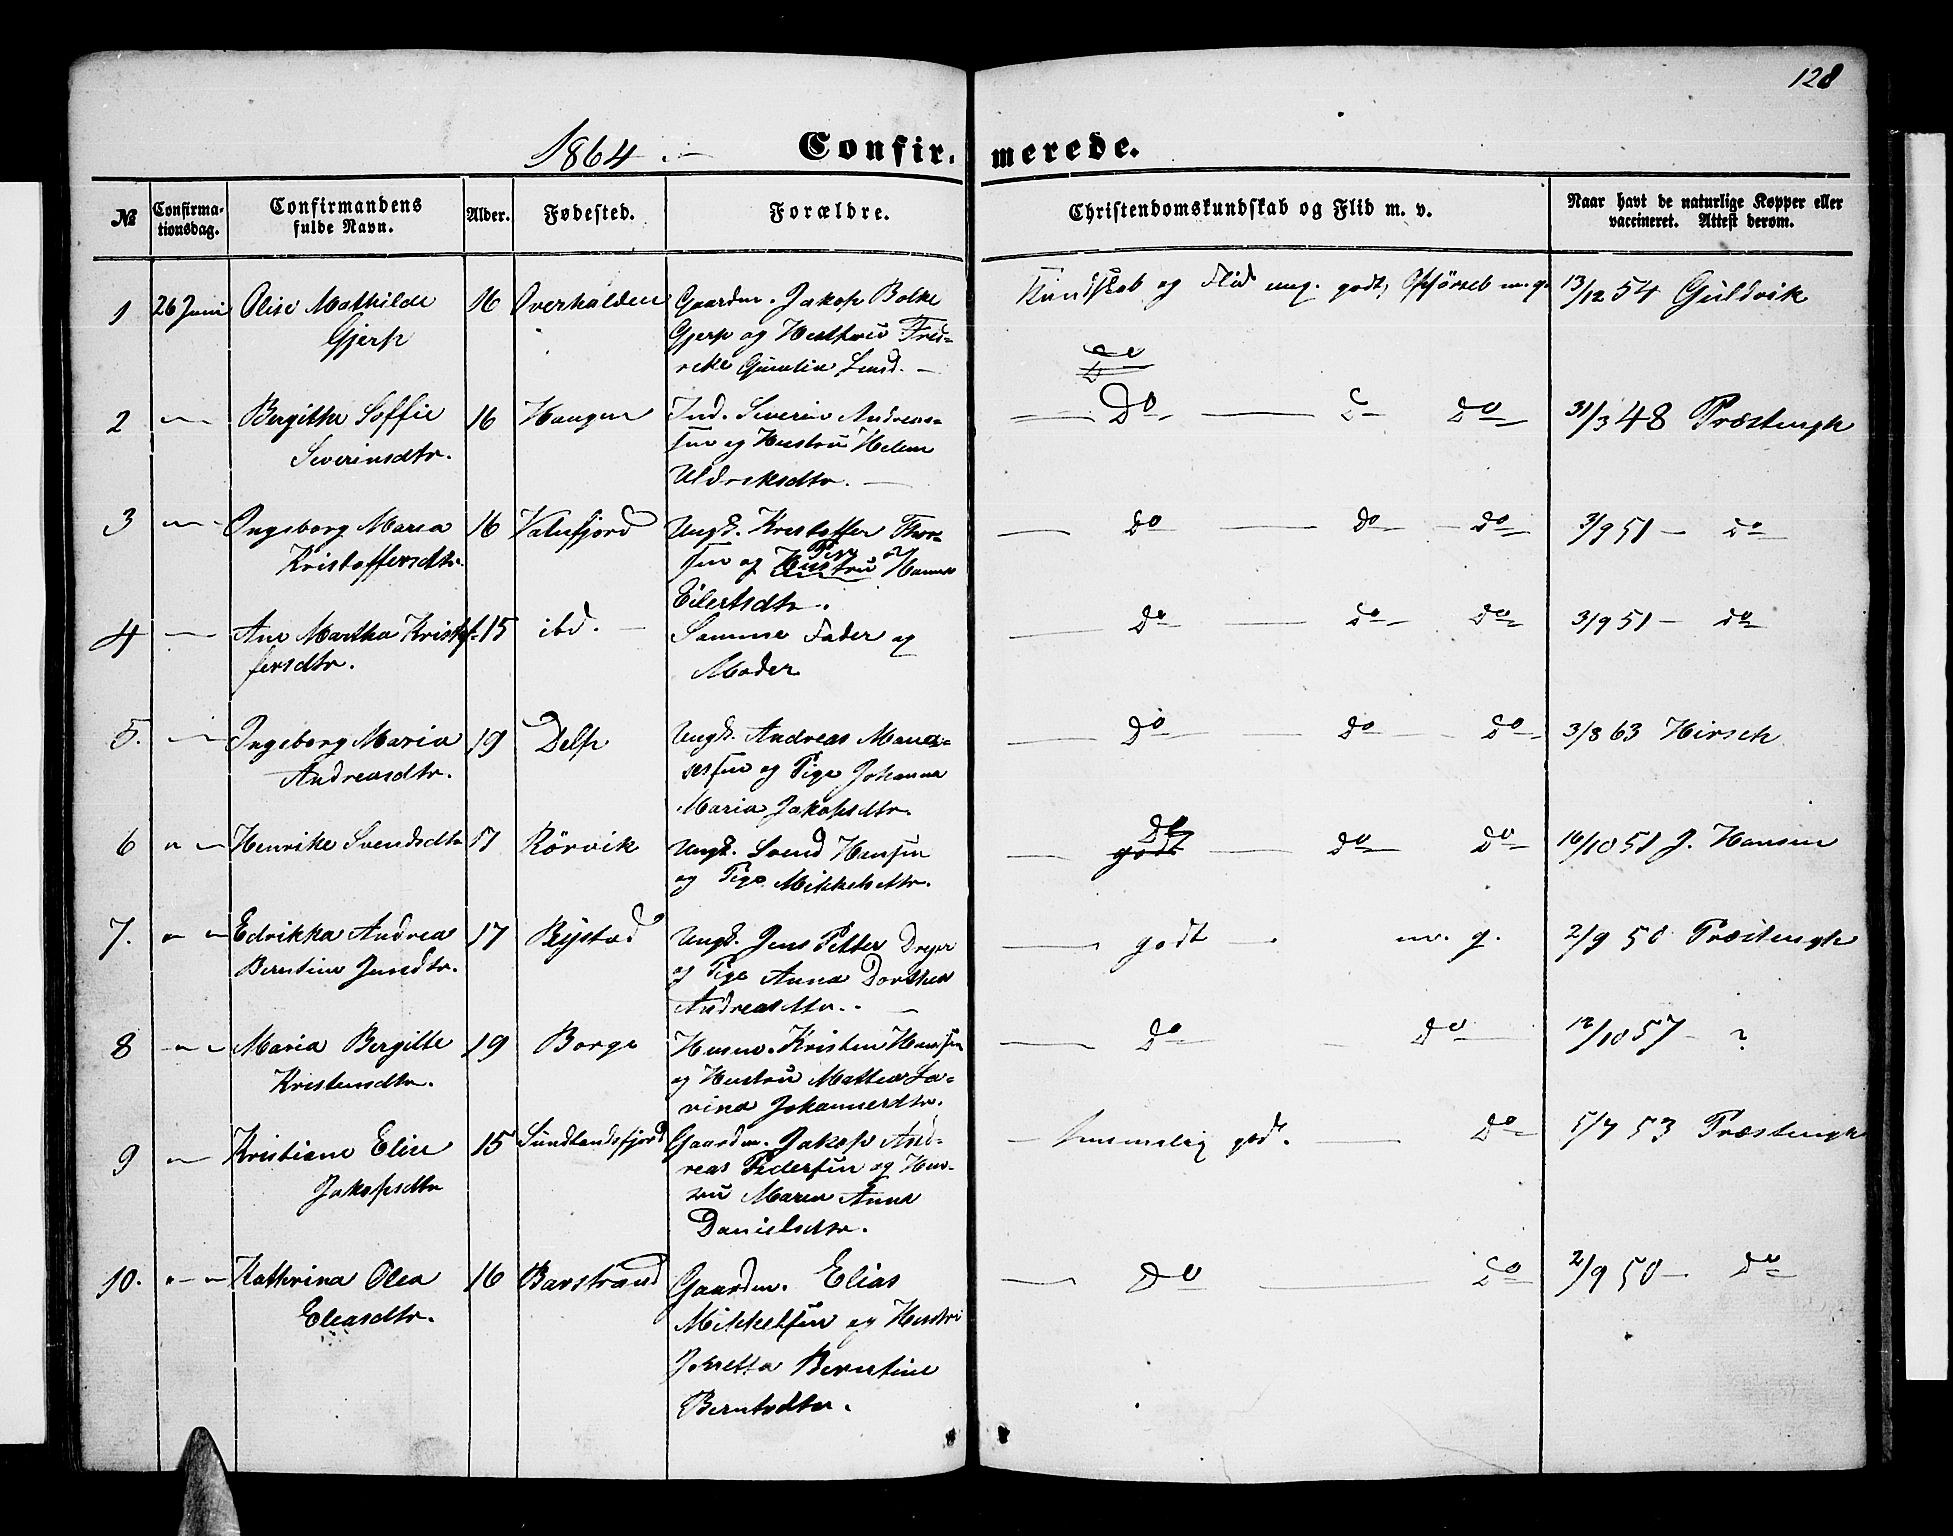 128
1864. Confirmerede.
№ Confirmationsdag. Confirmandens fulde Navn. Alder. Fødested. Forældre. Christendomskundskab og Flid m. v. Naar havt de naturlige Kopper eller vaccineret. Attest derom.
1 26 Juni Olise Mathilde 16 Overhalden Gaardm. Jakop Bolke Kundskab og Flid mg. godt, Opførsel m.g. 13/12 54 Guldvik
Gjerp Gjerp og Husthru Fred-
reke Lund. —
Do
2 — Bergithe Soffie 16 Haugen Ind. Severin Andreas- — Do — D — Do 31/3 48 Præstengh
Severinsdtr. sen og Hustru Helene
Uldriksdtr. —
3 — Ingeborg Maria 16 Valefjord Ungk. Kristoffer Thor- — Do — Do — Do 3/9 51 — Do
Kristoffersdtr. sen og Hustru Pige Hanna
Eilertsdtr.
4 — Ane Martha Kristof- 15 ibd. — Samme Fader og — Do — Do — Do 3/9 51 — Do
fersdtr. Moder
5. — Ingeborg Maria 19 Delp Ungk. Andreas — Do — Do — Do 3/8 63 Hirsch
Andreasdtr. sen og Pige Johanna
Maria Jakopsdtr.
6 " — Henrike Svendsdtr 17 Rörvik Ungk. Svend Hansen — godt Do — Do — Do 16/10 51 J. Hansen
og Pige Mikkelsdtr.
7. " — Edrikka Andrea 17 Bejstad Ungk. Jens Petter Dreyer — godt — m. g. 2/9 50 Præstengh
Berntine Jensdtr. og Pige Anna Dorthea
Andreasdtr. —
8 — " — Maria Bergitte 19 Borge Husm. Kristen Hansen — Do — Do — 12/10 57 — ?
Kristensdtr. og Hustru Mattea La-
vina Johannesdtr.
9 " — Kristiane Elise 15 Sundlandsfjord Gaardm. Jakop And- — temmelig godt. — Do 5/7 53 Præstengh
Jakopsdtr reas Pedersen og Hus-
tru Maren Anna
Danielsdtr.
10. " — " — Kathrina Olea 16 Barstrand Gaardm. Elias — Do — Do 2/9 50 — Do
Eleasdtr. Mikkelsen og Hustru
Joretta Berntine
Berntsdtr.